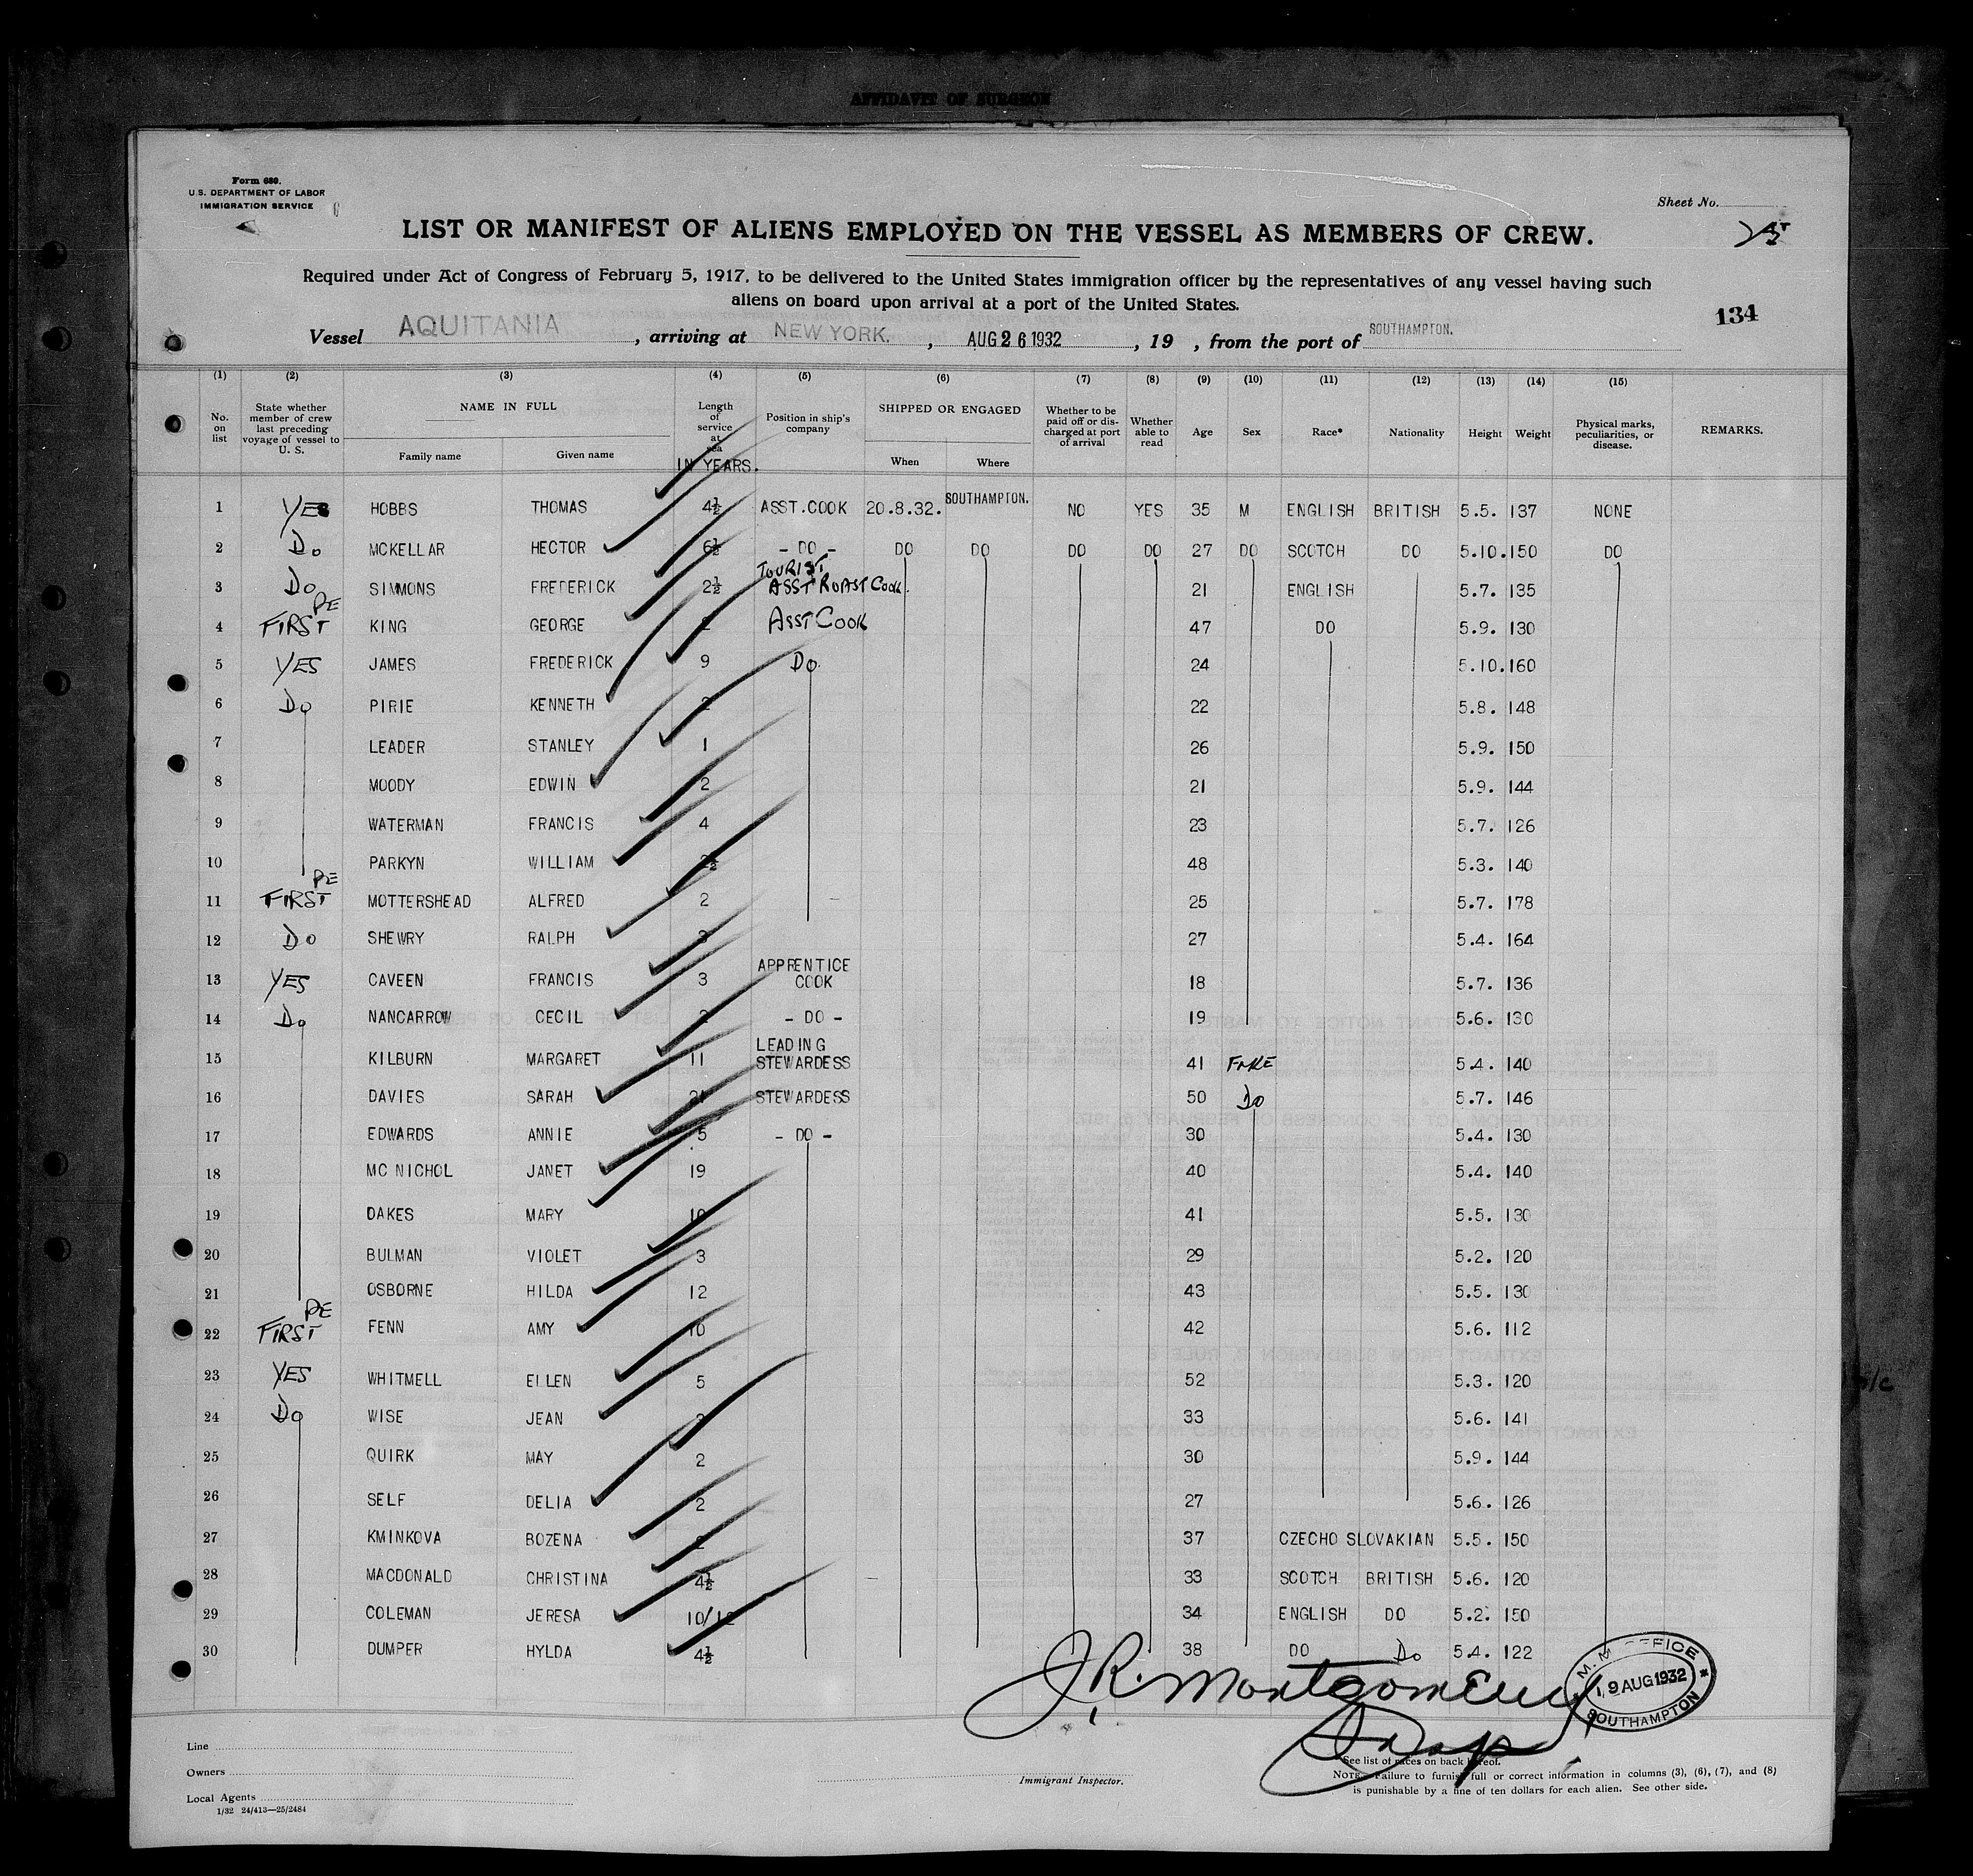 AFFIDAVIT OF SURGEON
Form 680.
U.S. DEPARTMENT OF LABOR
IMMIGRATION SERVICE
Sheet No.
LIST OR MANIFEST OF ALIENS EMPLOYED ON THE VESSEL AS MEMBERS OF CREW.
Required under Act of Congress of February 5, 1917, to be delivered to the United States immigration officer by the representatives of any vessel having such
aliens on board upon arrival at a port of the United States.
134
Vessel AQUITANIA, arriving at NEW YORK., AUG 26 1932, 19 , from the port of SOUTHAMPTON.
(1) (2) (3) (4) (5) (6) (7) (8) (9) (10) (11) (12) (13) (14) (15)
No. on list State whether member of crew last preceding voyage of vessel to U. S. NAME IN FULL Family name Given name Length of service at sea IN YEARS. Position in ship's company SHIPPED OR ENGAGED When Where Whether to be paid off or discharged at port of arrival Whether able to read Age Sex Race* Nationality Height Weight Physical marks, peculiarities, or disease. REMARKS.
1 YES HOBBS THOMAS 4½ ASST.COOK 20.8.32. SOUTHAMPTON. NO YES 35 M ENGLISH BRITISH 5.5. 137 NONE
2 Do MCKELLAR HECTOR 6½ - DO - DO DO DO DO 27 DO SCOTCH DO 5.10. 150 DO
3 Do SIMMONS FREDERICK 2½ TOURIST ASST ROAST COOK. 21 ENGLISH 5.7. 135
4 FIRST PE KING GEORGE 2 ASST COOK 47 DO 5.9. 130
5 YES JAMES FREDERICK 9 Do 24 5.10. 160
6 Do PIRIE KENNETH 2 22 5.8. 148
7 LEADER STANLEY 1 26 5.9. 150
8 MOODY EDWIN 2 21 5.9. 144
9 WATERMAN FRANCIS 4 23 5.7. 126
10 PARKYN WILLIAM 2½ 48 5.3. 140
11 FIRST PE MOTTERSHEAD ALFRED 2 25 5.7. 178
12 Do SHEWRY RALPH 3 27 5.4. 164
13 YES CAVEEN FRANCIS 3 APPRENTICE COOK 18 5.7. 136
14 Do NANCARROW CECIL 2 - DO - 19 5.6. 130
15 KILBURN MARGARET 11 LEADING STEWARDESS 41 FMLE 5.4. 140
16 DAVIES SARAH 21 STEWARDESS 50 Do 5.7. 146
17 EDWARDS ANNIE 5 - DO - 30 5.4. 130
18 MC NICHOL JANET 19 40 5.4. 140
19 OAKES MARY 10 41 5.5. 130
20 BULMAN VIOLET 3 29 5.2. 120
21 OSBORNE HILDA 12 43 5.5. 130
22 FIRST PE FENN AMY 10 42 5.6. 112
23 YES WHITMELL ELLEN 5 52 5.3. 120
24 Do WISE JEAN 33 5.6. 141
25 QUIRK MAY 2 30 5.9. 144
26 SELF DELIA 2 27 5.6. 126
27 KMINKOVA BOZENA 2 37 CZECHO SLOVAKIAN 5.5. 150
28 MACDONALD CHRISTINA 4½ 33 SCOTCH BRITISH 5.6. 120
29 COLEMAN JERESA 10/12 34 ENGLISH DO 5.2. 150
30 DUMPER HYLDA 4½ 38 DO Do 5.4. 122
J.R. Montgomery
M. M. OFFICE
19 AUG 1932
SOUTHAMPTON
Line
Owners
Local Agents
1/32 24/413—25/2484
Immigrant Inspector.
See list of races on back hereof.
NOTE.—Failure to furnish full or correct information in columns (3), (6), (7), and (8)
is punishable by a fine of ten dollars for each alien. See other side.